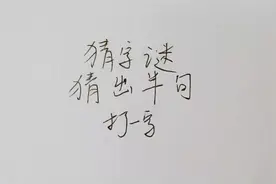 猜字谜
猜出半句
打一字